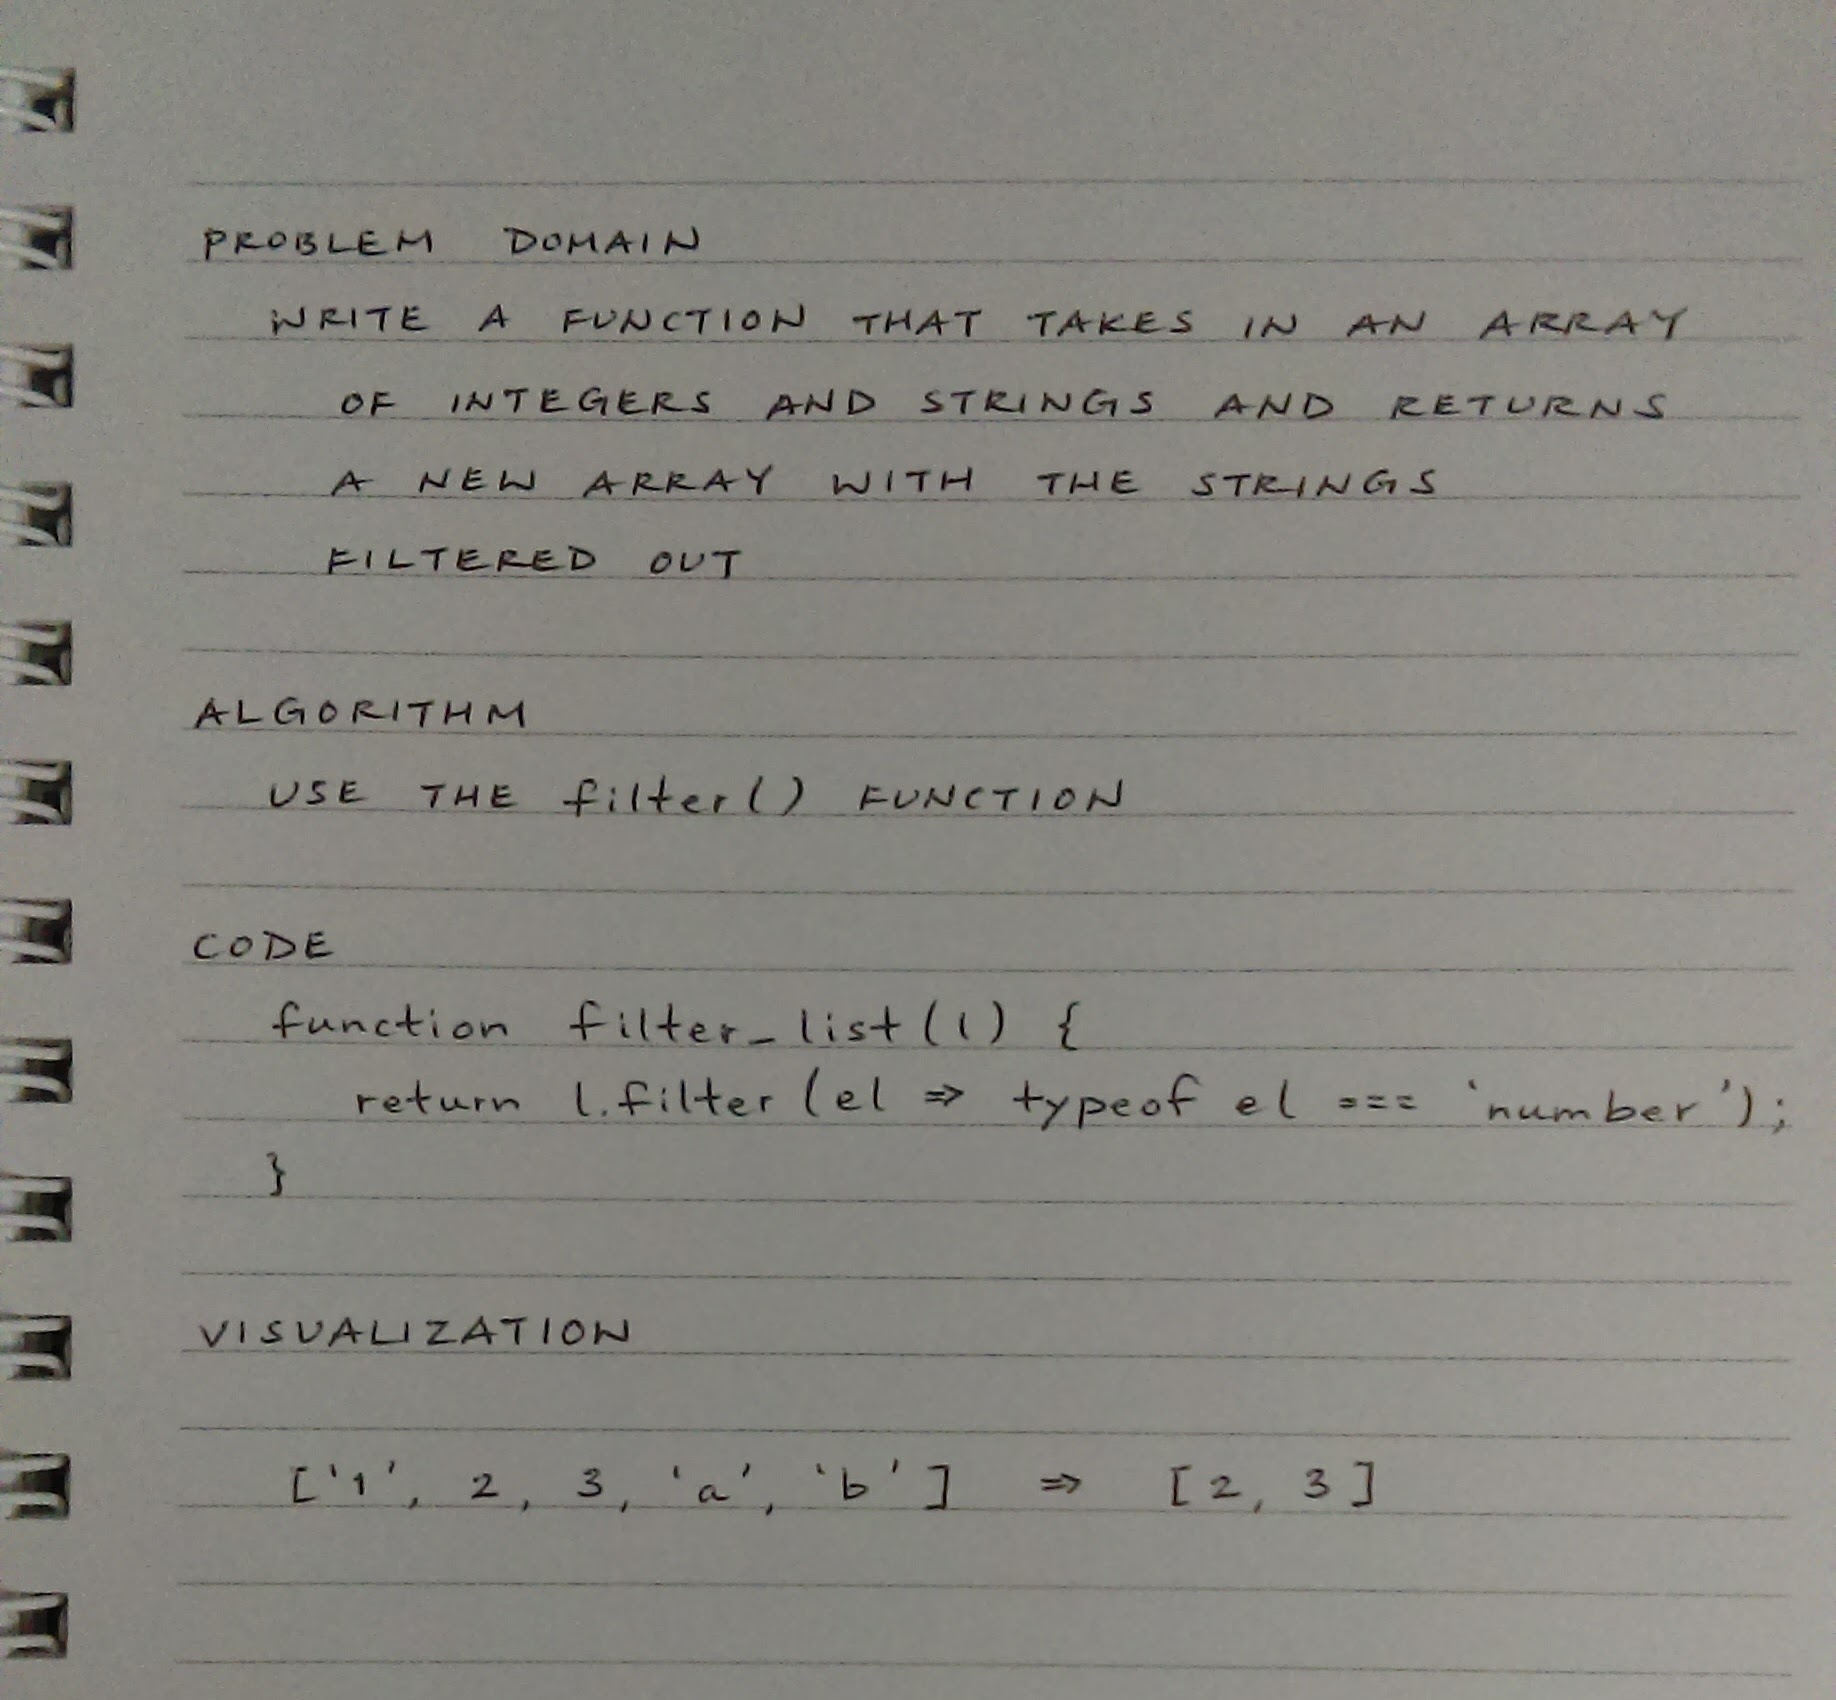 PROBLEM DOMAIN
WRITE A FUNCTION THAT TAKES IN AN ARRAY
OF INTEGERS AND STRINGS AND RETURNS
A NEW ARRAY WITH THE STRINGS
FILTERED OUT
ALGORITHM
USE THE filter() FUNCTION
CODE
function filter_list(l) {
return l.filter(el => typeof el === 'number');
}
VISUALIZATION
['1', 2, 3, 'a', 'b'] => [2, 3]